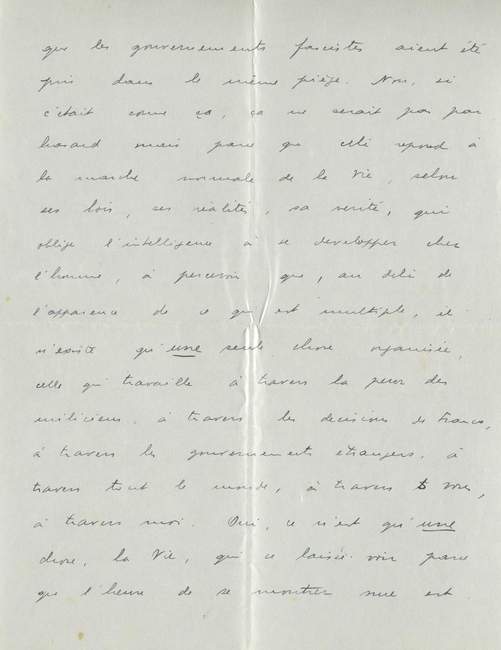 que les gouvernements fascistes aient été
pris dans le même piège. Non, si
c'était comme ça, ça ne serait pas par
hasard mais parce que cela repond à
la marche normale de la Vie, selon
ses lois, ses réalités, sa verité, qui
oblige l'intelligence à se developper chez
l'homme, à percevoir que, au delà de
l'apparence de ce qui est multiple, il
n'existe qu'une seule chose organisée,
celle qui travaille à travers la peur des
miliciens, à travers les decisions de Franco,
à travers les gouvernements étrangers, à
travers tout le monde, à travers vous,
à travers moi. Oui, ce n'est qu'une
chose, la Vie, qui se laisse voir parce
que l'heure de se montrer nue est